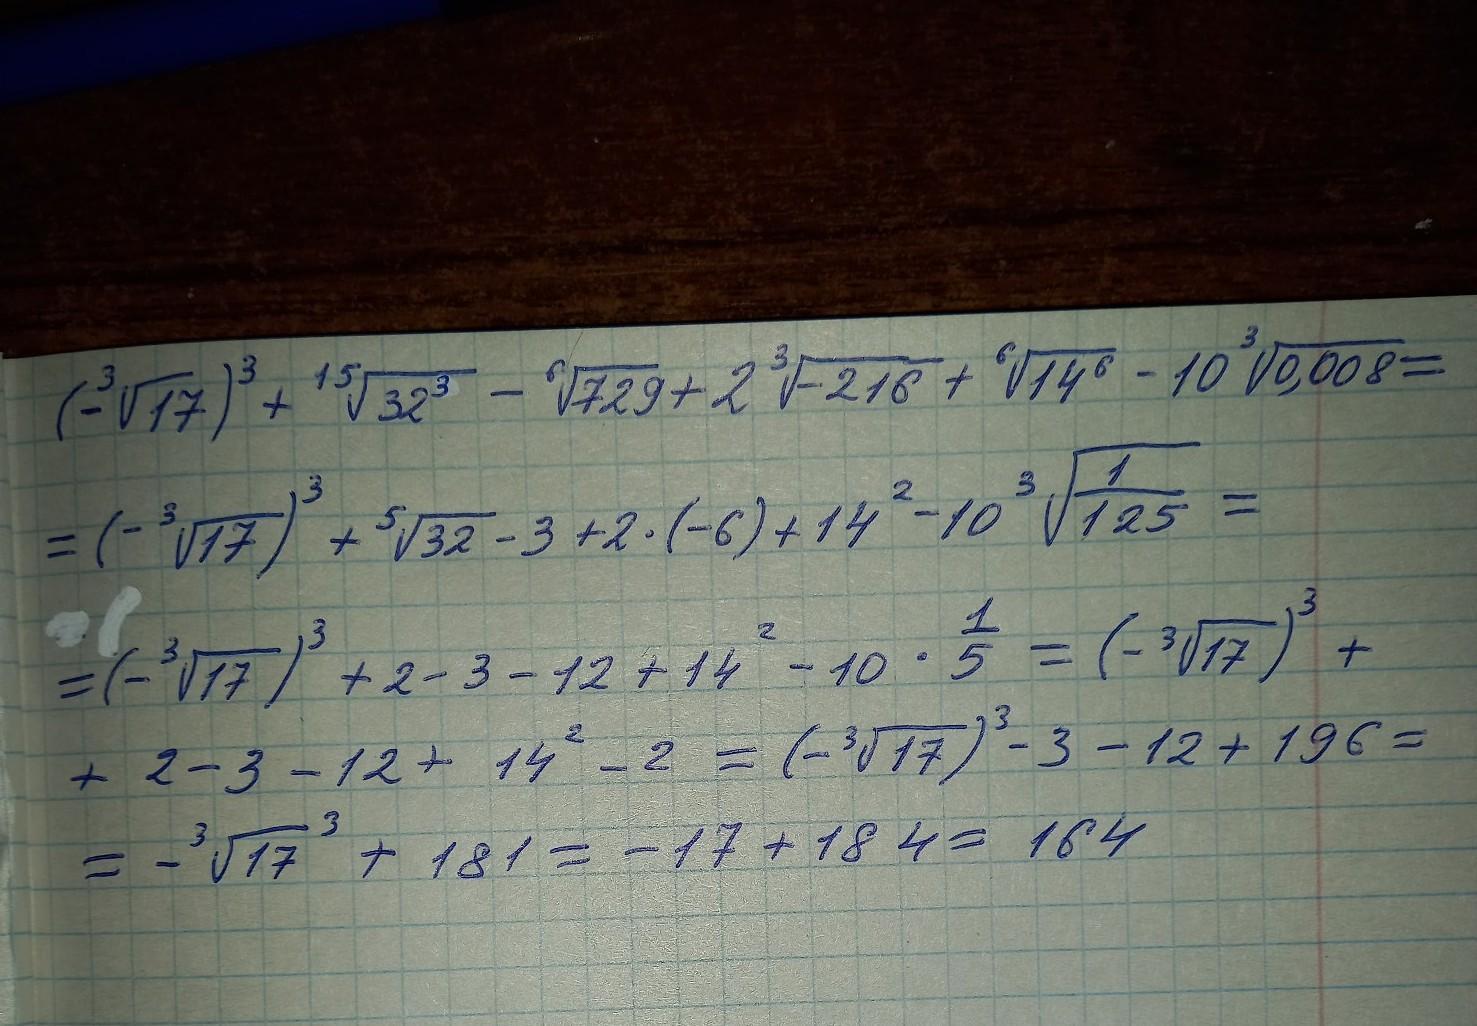 (-³√17)³ + ¹⁵√32³ - ⁶√729 + 2 ³√-216 + ⁶√14⁶ - 10 ³√0,008 =
= (-³√17)³ + ⁵√32 - 3 + 2·(-6) + 14² - 10 ³√(1/125) =
= (-³√17)³ + 2 - 3 - 12 + 14² - 10 · 1/5 = (-³√17)³ +
+ 2 - 3 - 12 + 14² - 2 = (-³√17)³ - 3 - 12 + 196 =
= -³√17³ + 181 = -17 + 184 = 164